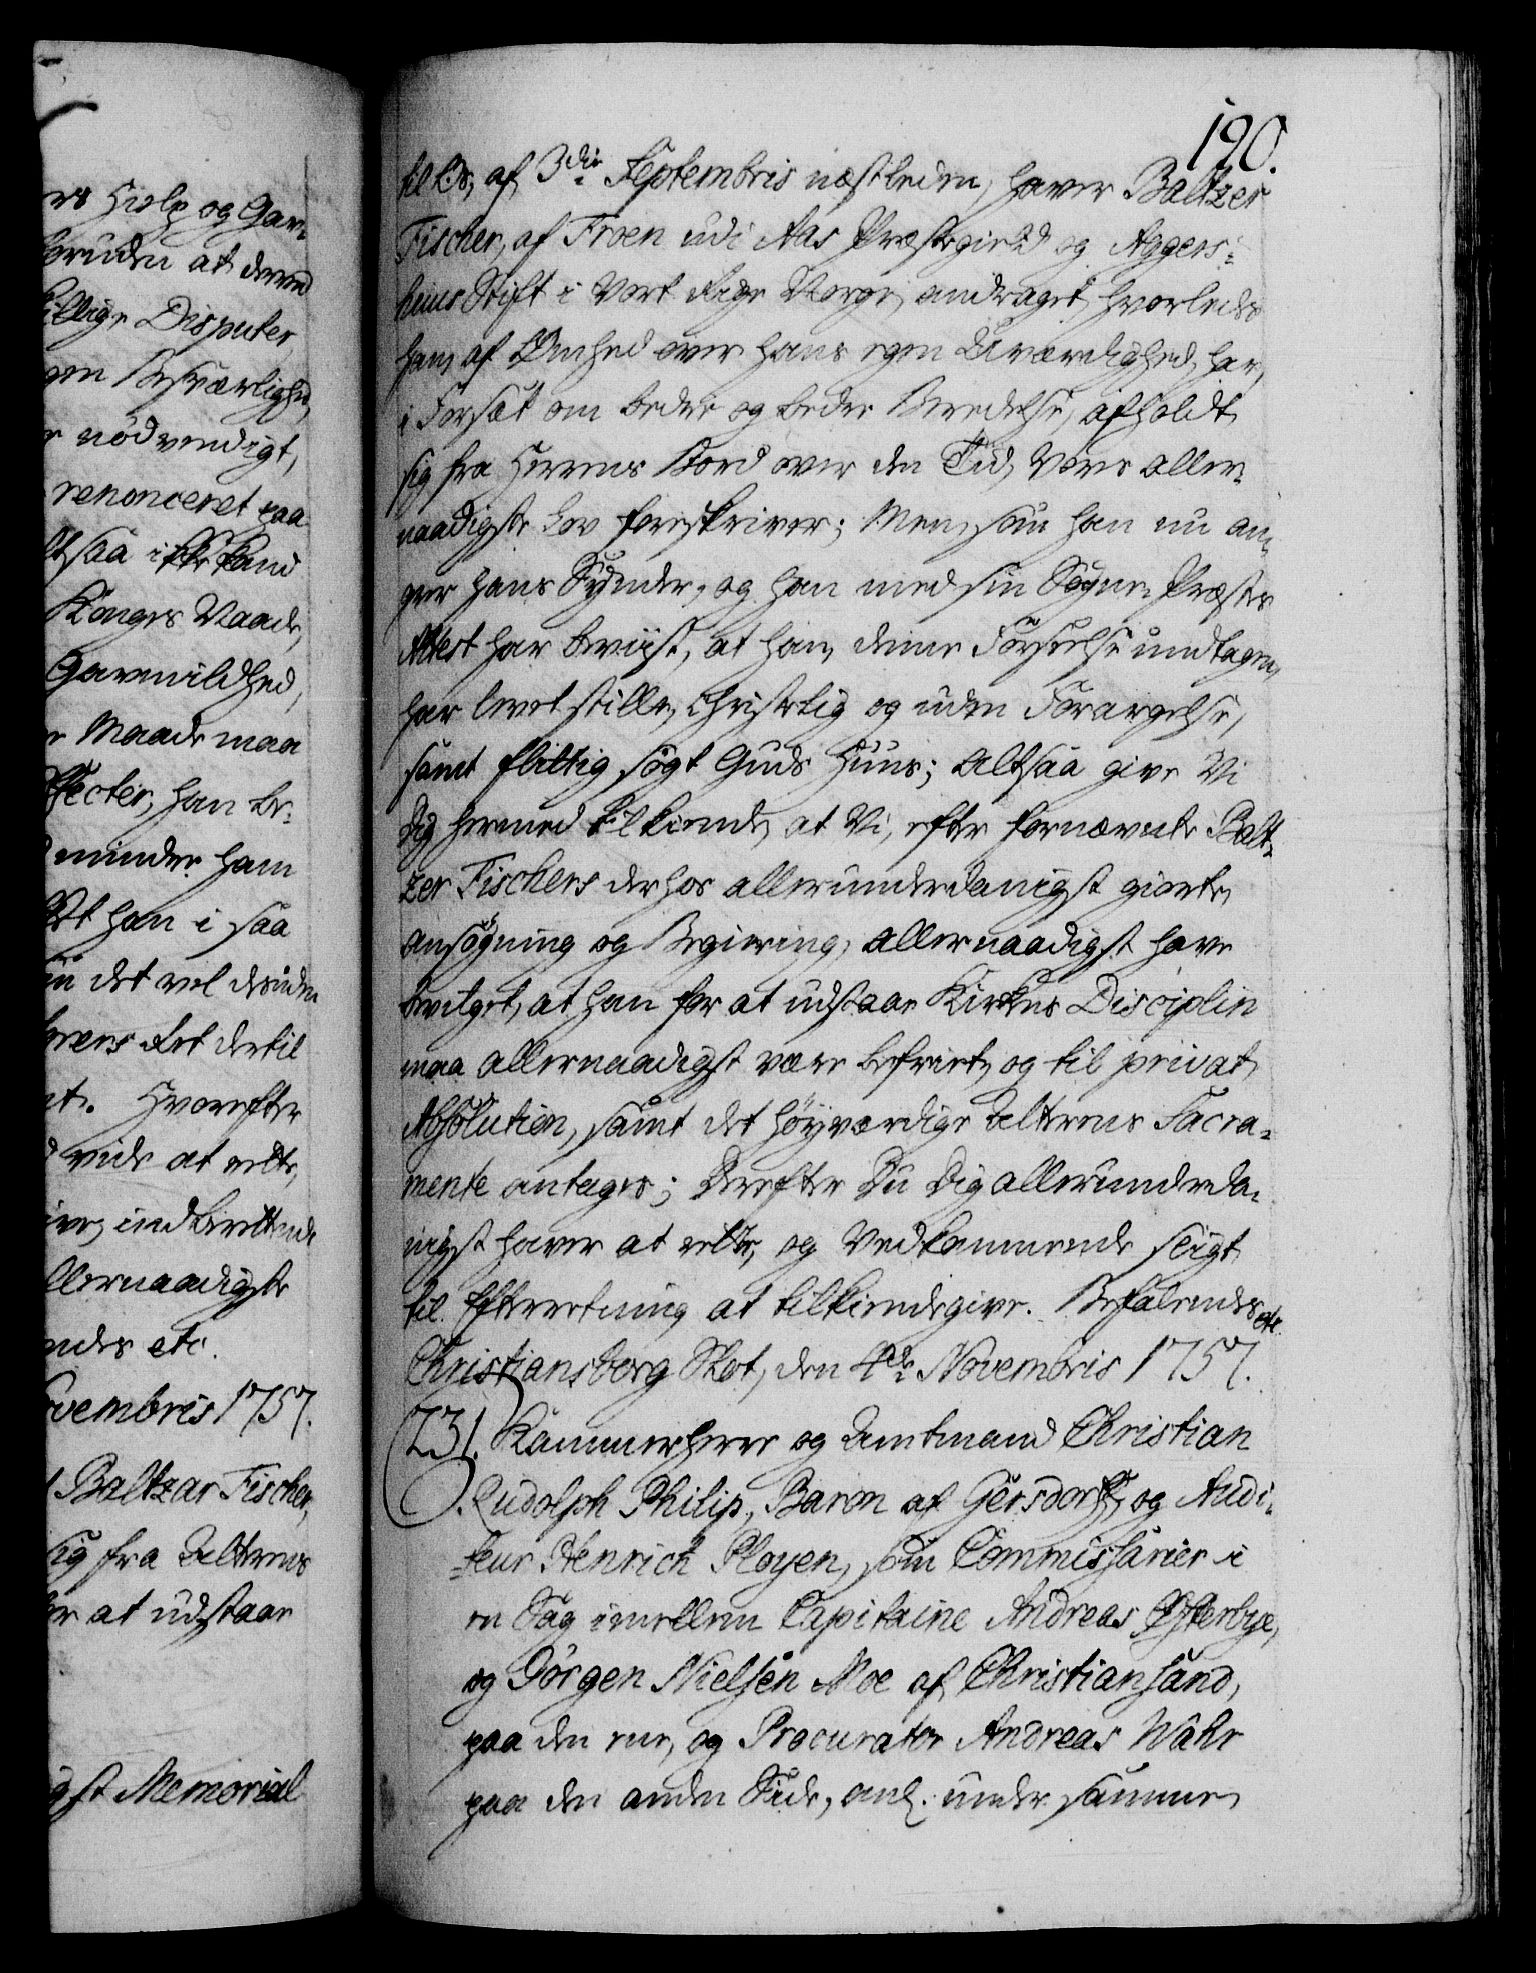 rs Hielp og Gavn-
foruden at derved
skillige Disputer
gen Besværlighed,
r nødvendigt,
renonceret paa
ltsaa ikke kand
Konges Naade,
Gavmildhed,
r Maade maa
ffecter, han be-
d mindre ham
At han i saa
det vel desuden
rens Ret dertil
nt. Hvorefter
vide at rette,
ive, indberettende
llernaadigste
ndes etc.
ovembris 1757.
Baltzar Fischer,
sig fra Alterens
for at udstaae
gst Memorial
190.
til Os, af 3die Septembris næstleden, haver Baltzer
Fischer, af Froen udi Aas Præstegield og Aggers-
huus Stift i Vort Rige Norge, andraget, hvorledes
han, af Ømhed over hans egen Uværdighed, har,
i Forsæt om bedre og bedre Beredelse, afholdt
sig fra Herrens Bord over den Tid, Vores aller-
naadigste Lov foreskriver; Men, som han nu an-
grer hans Synder, og han med sin Sogne-Præstes
Attest har beviist, at han, denne Forseelse undtagen,
har levet stille, Christelig og uden Forargelse,
samt flittig søgt Guds Huus; Altsaa give Vi
Dig hermed tilkiende, at Vi, efter fornævnte Balt-
zer Fischers derhos allerunderdanigst giorte
Ansøgning og Begiering, allernaadigst have
bevilget, at han for at udstaae Kirkens Disciplin
maa allernaadigst være befriet, og til privat
Absolution, samt det høyværdige Alterens Sacra-
mente antages; Derefter Du Dig allerunderda-
nigst haver at rette, og Vedkommende sligt
til Efterretning at tilkiendegive. Befalendes etc.
Christiansborg Slot, den 4de Novembris 1757.
731. Kammerherre og Amtmand Christian
Rudolph Philip, Baron af Gersdorff, og Audi-
teur Henrich Ployen, som Commissarier i
en Sag imellem Capitaine Andreas Østerbye,
og Jörgen Nielsen Moe af Christiansand,
paa den ene, og Procurator Andreas Wahr
paa den anden Side, anl. under samme